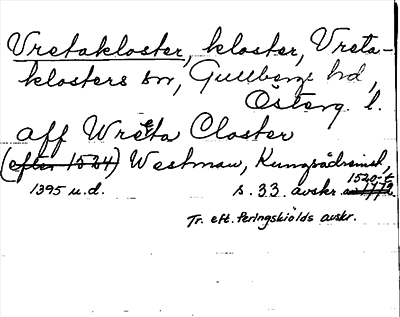 Vretakloster, kloster, Vreta-
klosters sn, Gullbergs hd,
Österg. l.
aff Wreta Closter
(efter 1524) Westman, Kungsrådsinst,
1520-t
1395 u.d. s. 33. avskr
Tr. eft. Peringskiölds avskr.